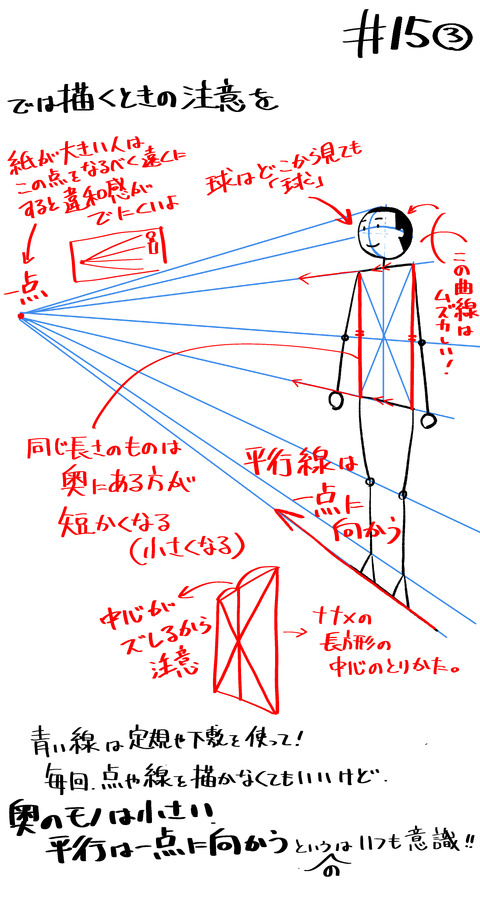 #15③
では描くときの注意を
紙が大きい人は
この点をなるべく遠くに
すると違和感が
でにくいよ
一点
球はどこから見ても
「球」
この曲線は
ムズカしい！
同じ長さのものは
奥にある方が
短かくなる
(小さくなる)
平行線は
一点に
向かう
中心が
ズレるから
注意
ナナメの
長方形の
中心のとりかた。
青い線は定規や下敷を使って！
毎回、点や線を描かなくてもいいけど、
奥のモノは小さい
平行は一点に向かう というのはいつも意識!!